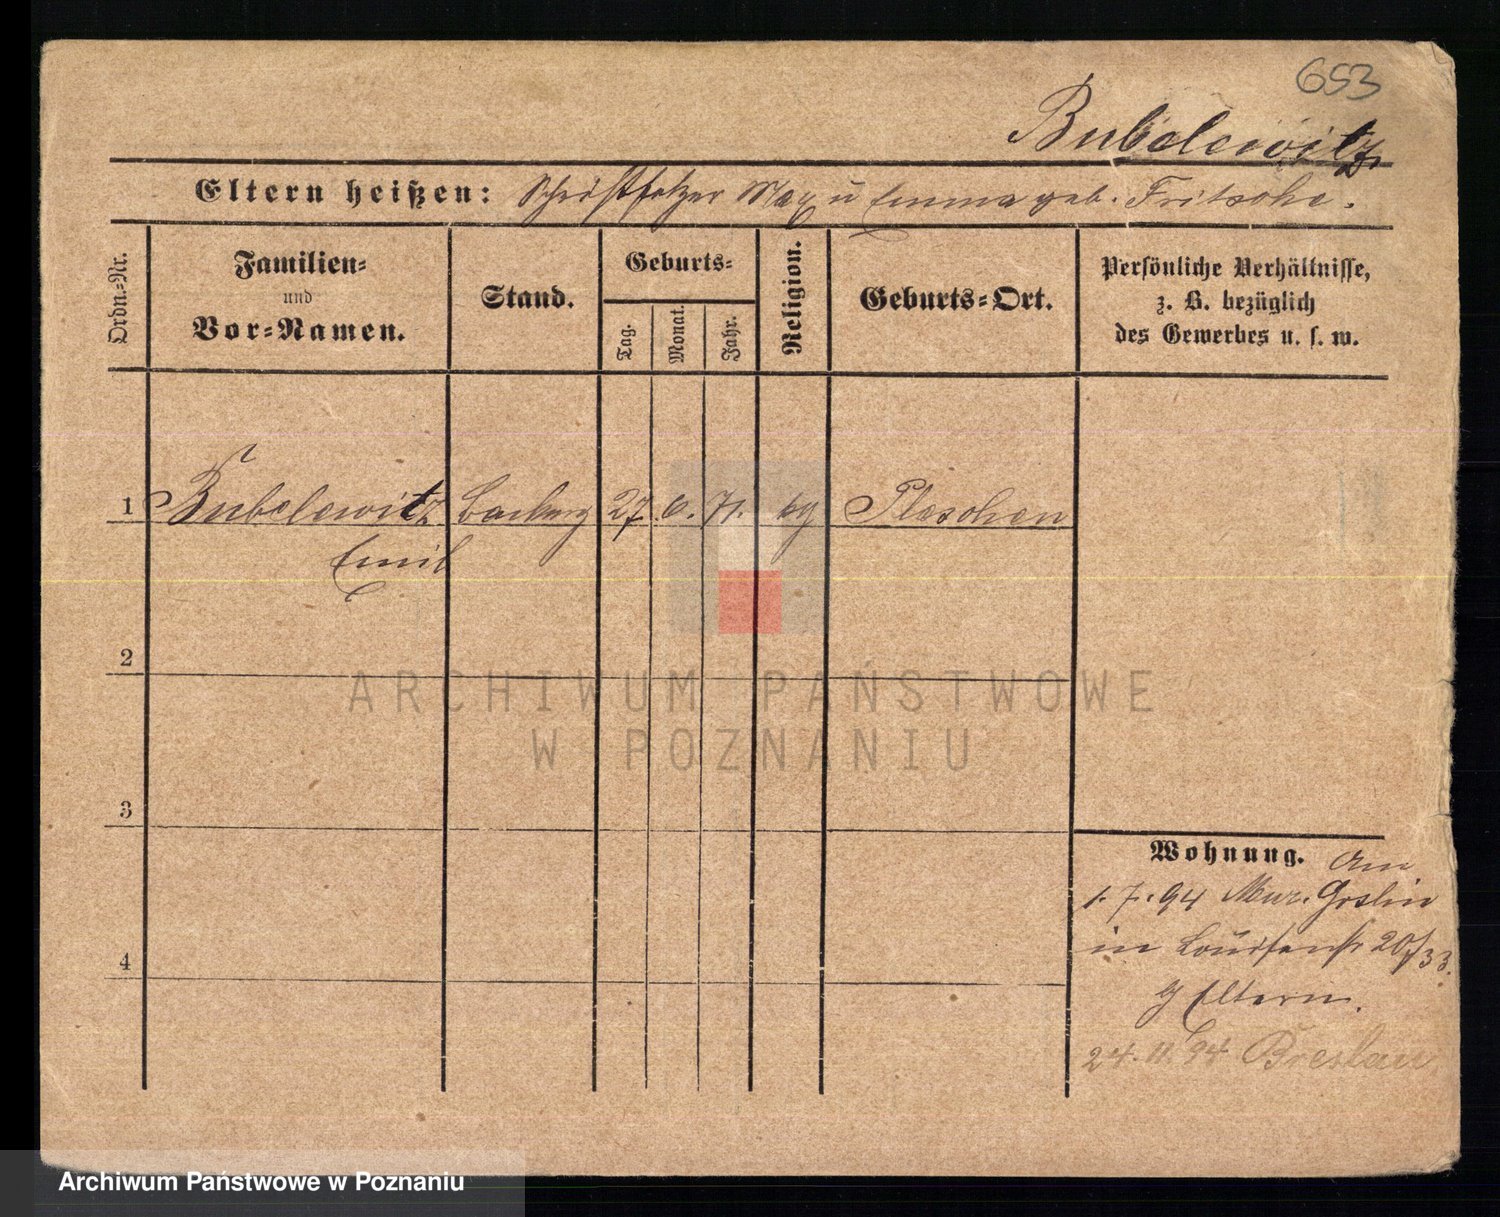 653
Bubelewitz
Eltern heißen: Schriftsetzer Max u Emma geb. Fritsche.
Ordn.-Nr.
Familien-
und
Vor-Namen.
Stand.
Geburts-
Tag.
Monat.
Jahr.
Religion.
Geburts-Ort.
Persönliche Verhältnisse,
z. B. bezüglich
des Gewerbes u. s. w.
1 Bubelewitz 27. 71. Pleschen
Emil
2
ARCHIWUM PAŃSTWOWE
W POZNANIU
3
Wohnung. Am
1.7.94 Mur. Goslin
in Louisenstr 20/33.
Eltern.
4
24.11.94 Breslau
Archiwum Państwowe w Poznaniu